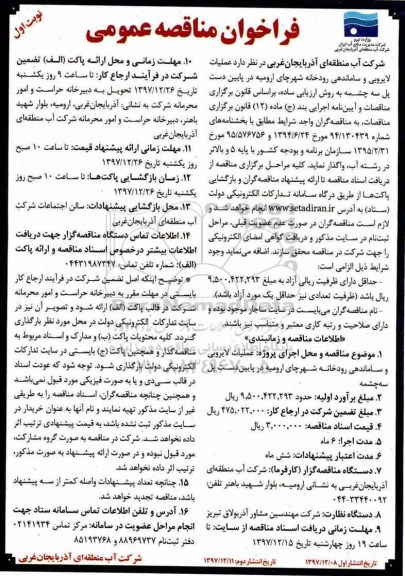 نوبت اول
فراخوان مناقصه عمومی
وزارت نیرو
شرکت مدیریت منابع آب ایران
شرکت آب منطقه‌ای آذربایجان‌غربی
شرکت آب منطقه‌ای آذربایجان‌غربی در نظر دارد عملیات
لایروبی و ساماندهی رودخانه شهرچای ارومیه در پایین دست
پل سه چشمه به روش ارزیابی ساده، براساس قانون برگزاری
مناقصات و آیین‌نامه اجرایی بند (ج) ماده (۱۲) قانون برگزاری
مناقصات، به مناقصه‌گران واجد شرایط مطابق با بخشنامه‌های
شماره ۹۴/۱۳۰۴۳۹ مورخ ۱۳۹۴/۶/۲۴ و ۹۵/۵۷۶۷۵۶ مورخ
۱۳۹۵/۲/۳۱ سازمان برنامه و بودجه کشور با پایه ۵ و بالاتر
در رشته آب، واگذار نماید. کلیه مراحل برگزاری مناقصه از
دریافت اسناد مناقصه تا ارائه پیشنهاد مناقصه‌گران و بازگشایی
پاکت‌ها از طریق درگاه سامانه تدارکات الکترونیکی دولت
(ستاد) به آدرس www.setadiran.ir انجام خواهد شد و
لازم است مناقصه‌گران در صورت عدم عضویت قبلی، مراحل
ثبت‌نام در سایت مذکور و دریافت گواهی امضای الکترونیکی
را جهت شرکت در مناقصه محقق سازند. اضافه می‌نماید وجود
شرایط ذیل الزامی است:
- حداقل دارای ظرفیت ریالی آزاد به مبلغ ۹,۵۰۰,۴۲۲,۲۹۳
ریال باشد (ظرفیت تعدادی نیز حداقل یک مورد آزاد باشد).
- نام مناقصه‌گران می‌بایست در سایت ساجار موجود بوده و
دارای صلاحیت و رتبه کاری معتبر و متناسب نیز باشند.
«اطلاعات مناقصه و زمانبندی»
۱. موضوع مناقصه و محل اجرای پروژه: عملیات لایروبی
و ساماندهی رودخانه شهرچای ارومیه در پایین‌دست پل
سه‌چشمه
۲. مبلغ برآورد اولیه: حدود ۹,۵۰۰,۴۲۲,۲۹۳ ریال
۳. مبلغ تضمین شرکت در ارجاع کار: ۴۷۵,۰۲۲,۰۰۰ ریال
۴. قیمت اسناد مناقصه: ۳,۰۰۰,۰۰۰ ریال
۵. مدت اجرا: ۶ ماه
۶. مدت اعتبار پیشنهادات: شش ماه
۷. دستگاه مناقصه‌گزار (کارفرما): شرکت آب منطقه‌ای
آذربایجان‌غربی به نشانی ارومیه، بلوار شهید باهنر تلفن:
۰۴۴-۳۳۴۴۰۰۹۲
۸. دستگاه نظارت: شرکت مهندسین مشاور آذربولاق تبریز
۹. مهلت زمانی دریافت اسناد مناقصه از سایت: تا
ساعت ۱۹ روز چهارشنبه تاریخ ۱۳۹۷/۱۲/۱۵
۱۰. مهلت زمانی و محل ارائه پاکت (الف) تضمین
شرکت در فرآیند ارجاع کار: تا ساعت ۹ روز یکشنبه
تاریخ ۱۳۹۷/۱۲/۲۶ تحویل به دبیرخانه حراست و امور
محرمانه شرکت به نشانی: آذربایجان‌غربی، ارومیه، بلوار شهید
باهنر، دبیرخانه حراست و امور محرمانه شرکت آب منطقه‌ای
آذربایجان‌غربی
۱۱. مهلت زمانی ارائه پیشنهاد قیمت: تا ساعت ۱۰ صبح
روز یکشنبه تاریخ ۱۳۹۷/۱۲/۲۶
۱۲. زمان بازگشایی پاکت‌ها: تا ساعت ۱۰ صبح روز
یکشنبه تاریخ ۱۳۹۷/۱۲/۲۶
۱۳. محل بازگشایی پیشنهادات: سالن اجتماعات شرکت
آب منطقه‌ای آذربایجان‌غربی
۱۴. اطلاعات تماس دستگاه مناقصه‌گزار جهت دریافت
اطلاعات بیشتر درخصوص اسناد مناقصه و ارائه پاکت
(الف): شماره تلفن تماس: ۰۴۴۳۱۹۸۷۳۴۷
* توضیح اینکه اصل تضمین شرکت در فرآیند ارجاع کار
بایستی در مهلت مقرر به دبیرخانه حراست و امور محرمانه
شرکت در قالب پاکت (الف) ارائه شود و تصویر آن نیز در
سایت تدارکات الکترونیکی دولت در محل مورد نظر بارگذاری
گردد. کلیه محتویات پاکت (ب) و مدارک و اسناد مربوط به
مناقصه‌گذار و همچنین پاکت (ج) بایستی در سایت تدارکات
الکترونیکی دولت بارگذاری شود. توجه شود که عودت اسناد
در قالب سی‌دی و یا به صورت فیزیکی مورد قبول نمی‌باشد
و همچنین چنانچه مناقصه‌گران، اسناد مناقصه را از طریقی
غیر از سایت مذکور تهیه نمایند و نام آنها به عنوان خریدار در
سایت مذکور ثبت نشده باشد، به قیمت پیشنهادی ترتیب اثر
داده نخواهد شد. شرکت در مناقصه به صورت گروه مشارکت،
مورد قبول نبوده و در صورت ارائه پیشنهاد به صورت مذکور،
ترتیب اثر داده نخواهد شد.
۱۵. چنانچه تعداد پیشنهادات واصله کمتر از سه پیشنهاد
باشد، مناقصه تجدید خواهد شد.
۱۶. آدرس و تلفن اطلاعات تماس سامانه ستاد جهت
انجام مراحل عضویت در سامانه: مرکز تماس ۰۲۱۴۱۹۳۴
دفتر ثبت‌نام ۸۸۹۶۹۷۳۷ و ۸۵۱۹۳۷۶۸
شرکت آب منطقه‌ای آذربایجان‌غربی
تاریخ انتشار اول: ۱۳۹۷/۱۲/۰۸ تاریخ انتشار دوم: ۱۳۹۷/۱۲/۱۱